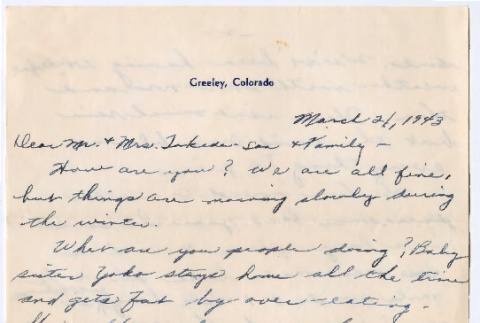 Greeley, Colorado
March 21, 1943
Dear Mr. & Mrs. Takeda-san & Family —
How are you? We are all fine,
but things are moving slowly during
the winter.
What are you people doing? Baby
sister Yoko stays home all the time
and gets fat by over-eating.